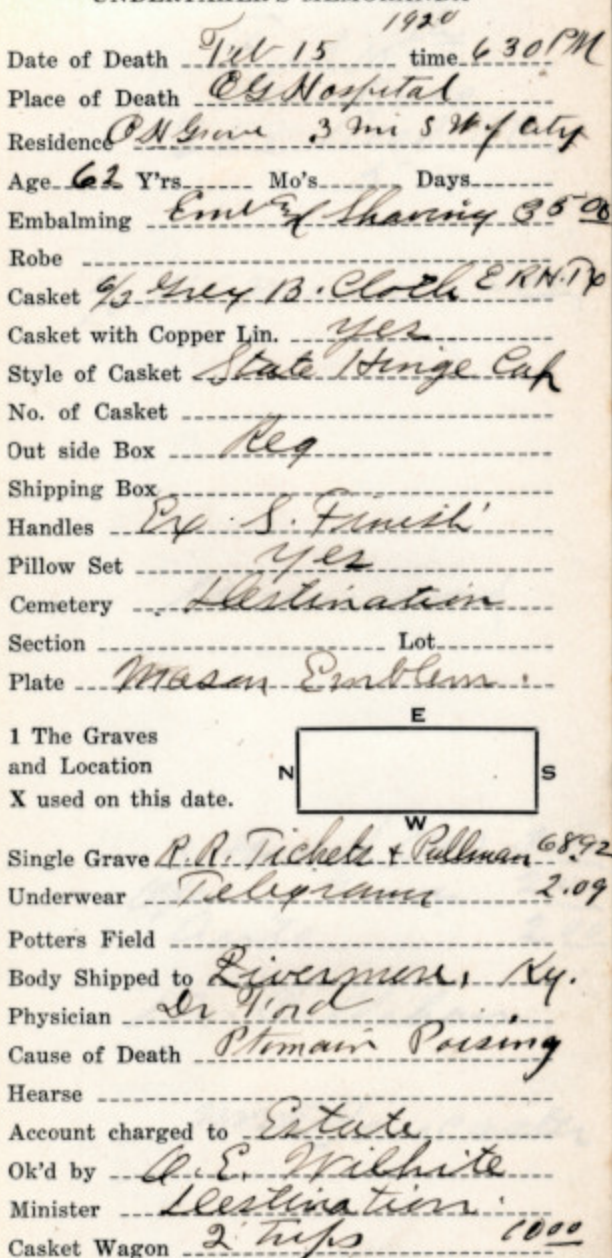 UNDERTAKER'S MEMORANDA
1920
Date of Death Feb 15 time 6 30 PM
Place of Death E G Hospital
Residence Grove 3 mi S W of City
Age 62 Y'rs. Mo's Days
Embalming Emb & Shaving 35 00
Robe
Casket 6/3 Grey B. Cloth
Casket with Copper Lin. yes
Style of Casket State Hinge Cap
No. of Casket
Out side Box Reg
Shipping Box
Handles Ex. S. Finish
Pillow Set yes
Cemetery Destination
Section Lot
Plate Mason Emblem.
E
1 The Graves
and Location
X used on this date.
N S
W
Single Grave R.R. Tickets & Pullman 68.92
Underwear Telegram 2.09
Potters Field
Body Shipped to Livermore, Ky.
Physician Dr Ford
Cause of Death Ptomain Poising
Hearse
Account charged to Estate
Ok'd by A. E. Wilhite
Minister Destination.
Casket Wagon 2 trips 10 00